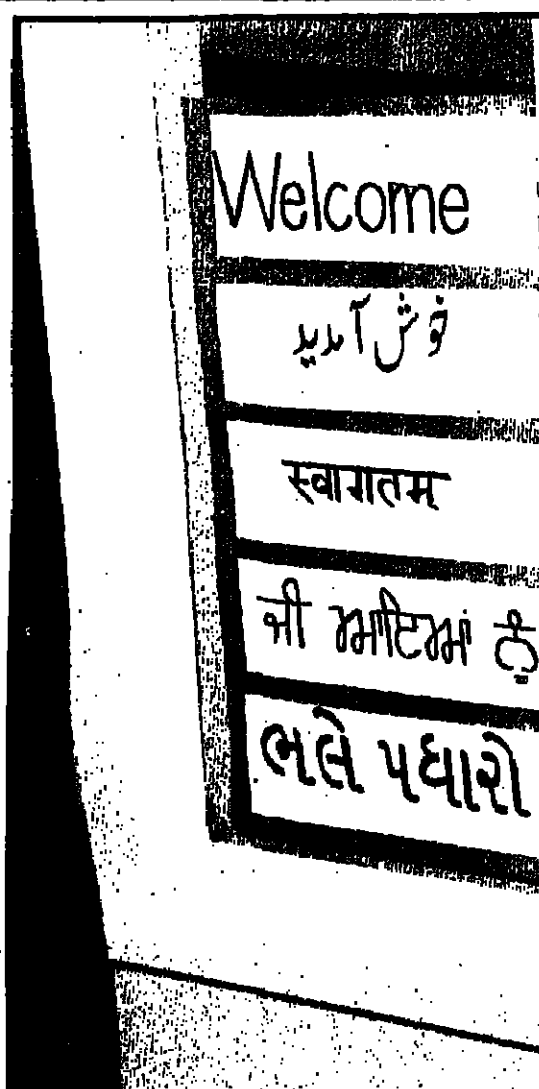 Welcome
خوش آمدید
स्वागतम
ਜੀ ਆਇਆਂ ਨੂੰ
ભલે પધારો